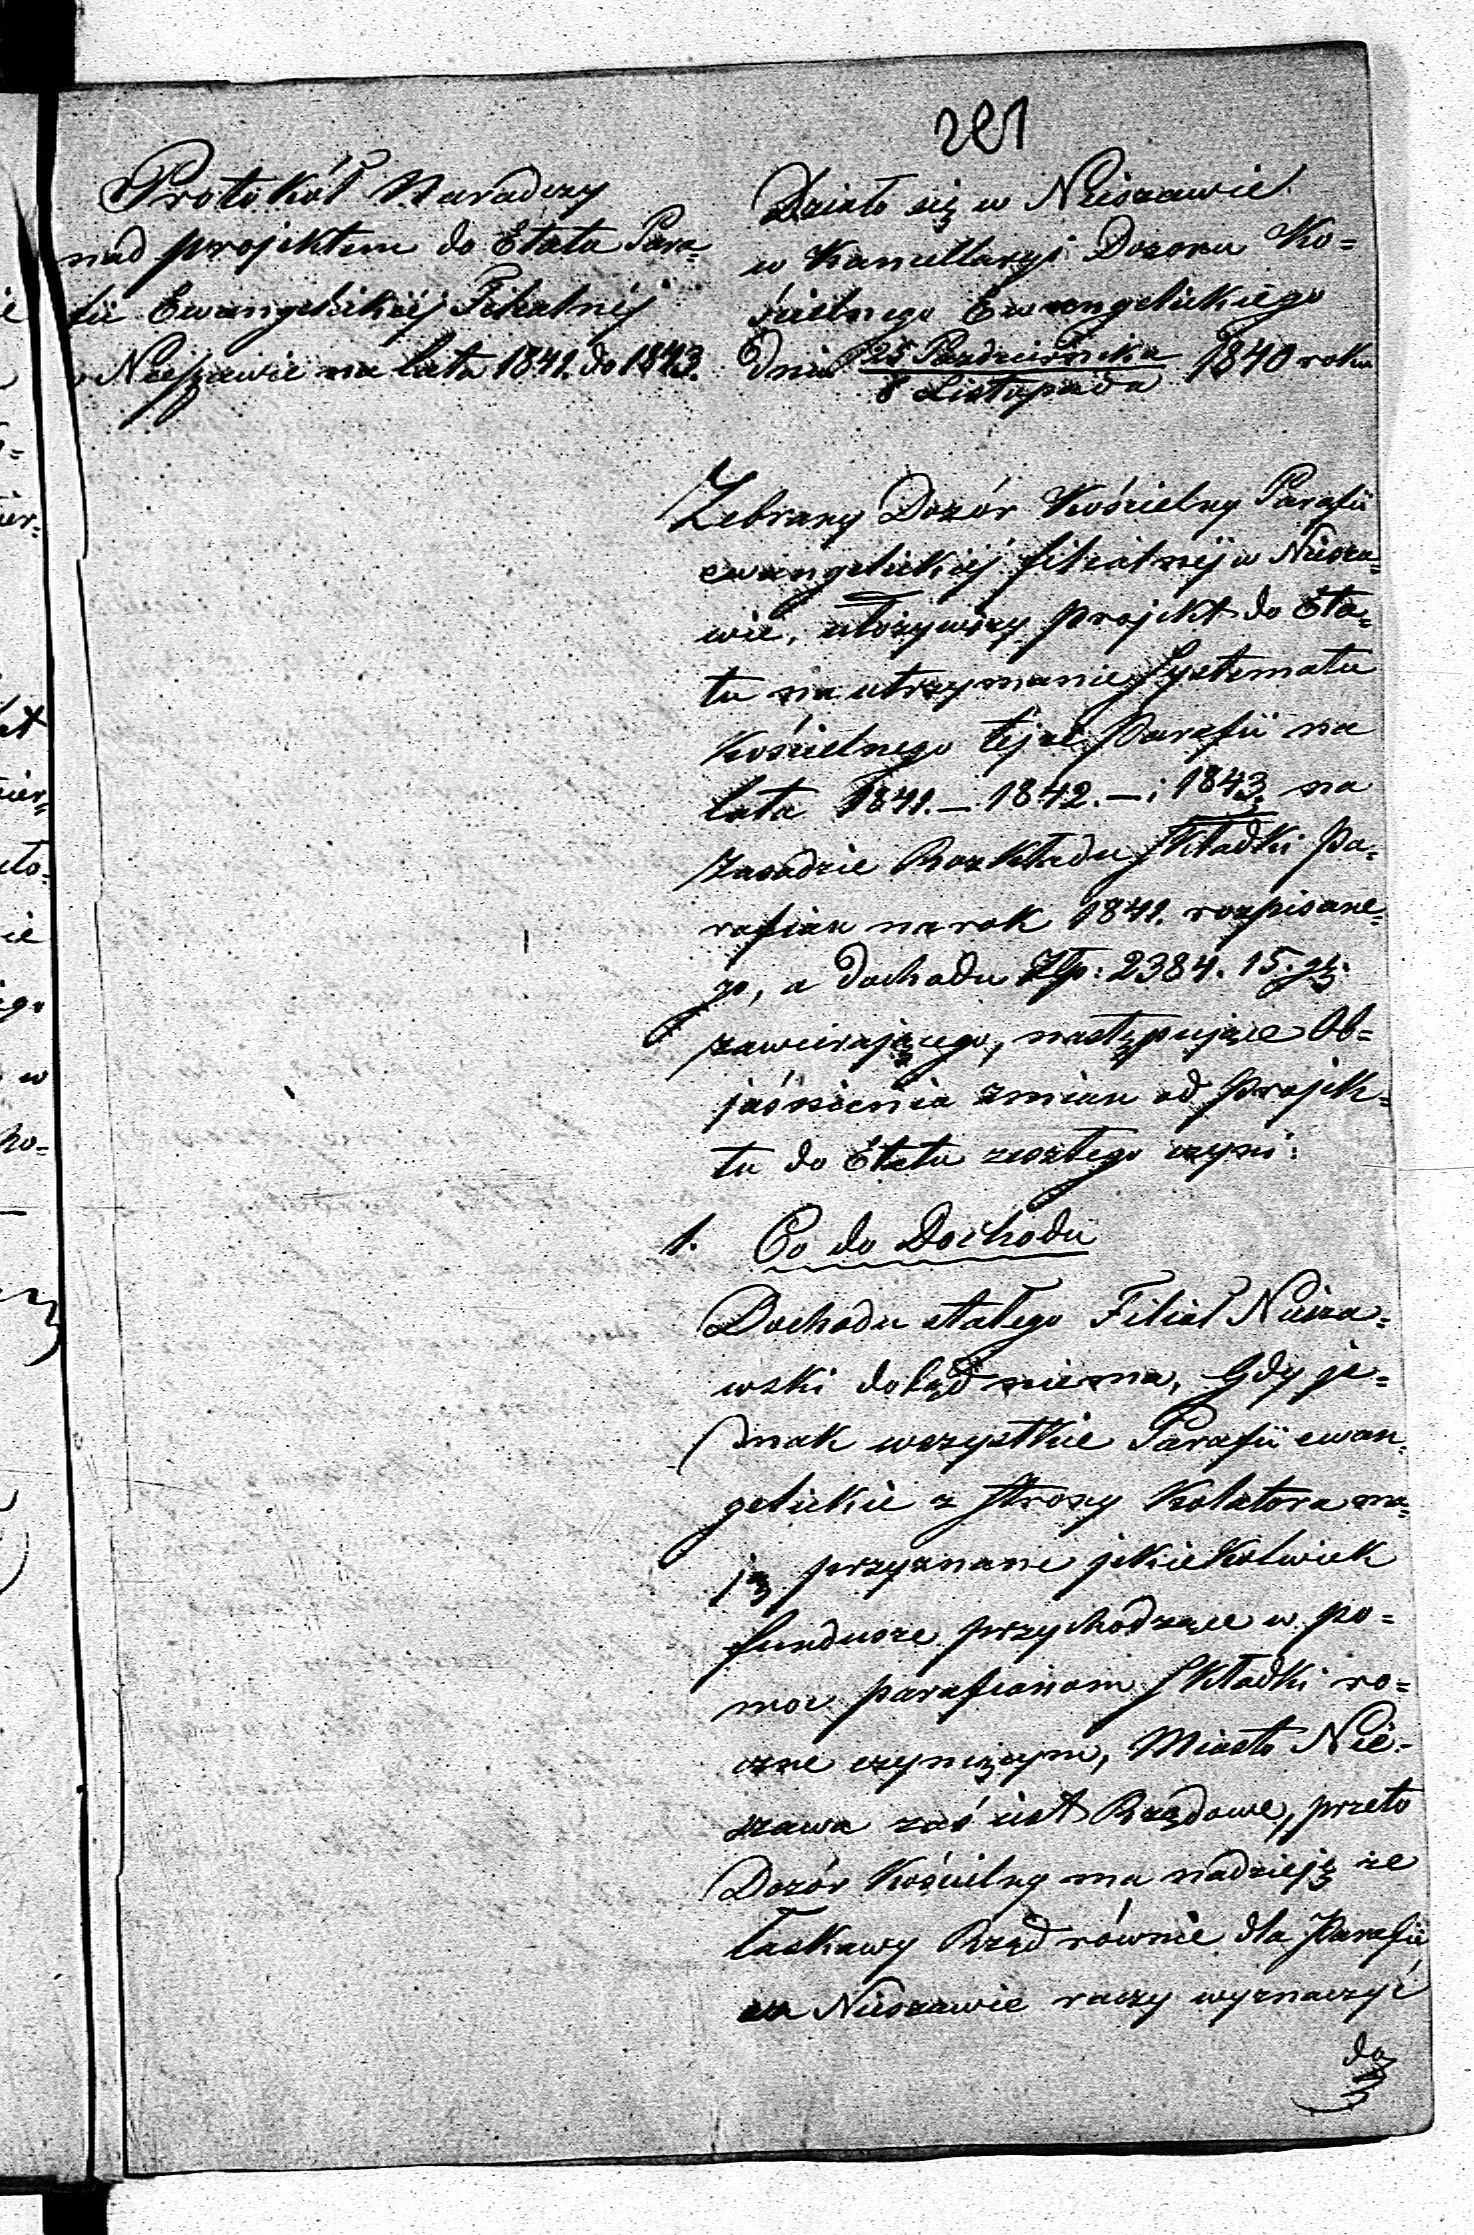 291
Protokół Naradczy
nad projektem do Etatu Para=
fii Ewangelickiej Filialnej
w Nieszawie na lata 1841. do 1843.
Działo się w Nieszawie
w Kancellaryi Dozoru Ko=
ścielnego Ewangelickiego
Dnia 25 Października 1840 roku
8 Listopada
Zebrany Dozór Kościelny Parafii
ewangelickiej filialnej w Niesza=
wie, ułożywszy projekt do Eta=
tu na utrzymanie Systematu
Kościelnego tejże Parafii na
lata 1841. – 1842. – i 1843. na
zasadzie Rozkładu Składki Pa=
rafian na rok 1841. rozpisane=
go, a dochodu Złp: 2384. 15. gr.
zawierającego, następujące Ob=
jaśnienia zmian od Projek=
tu do Etatu zeszłego czyni:
1. Co do Dochodu
Dochodu stałego Filiał Niesza=
wski dotąd niema, Gdy je=
dnak wszystkie Parafii ewan=
gelickie z strony Kolatora ma=
ją przyznane jakiekolwiek
fundusze przychodzące w po=
moc parafianom Składki ro=
czne czyniącym, Miasto Nie=
szawa zaś jest Rządowe, przeto
Dozór Kościelny ma nadzieję że
łaskawy Rząd równie dla Parafii
w Nieszawie raczy wyznaczyć
do